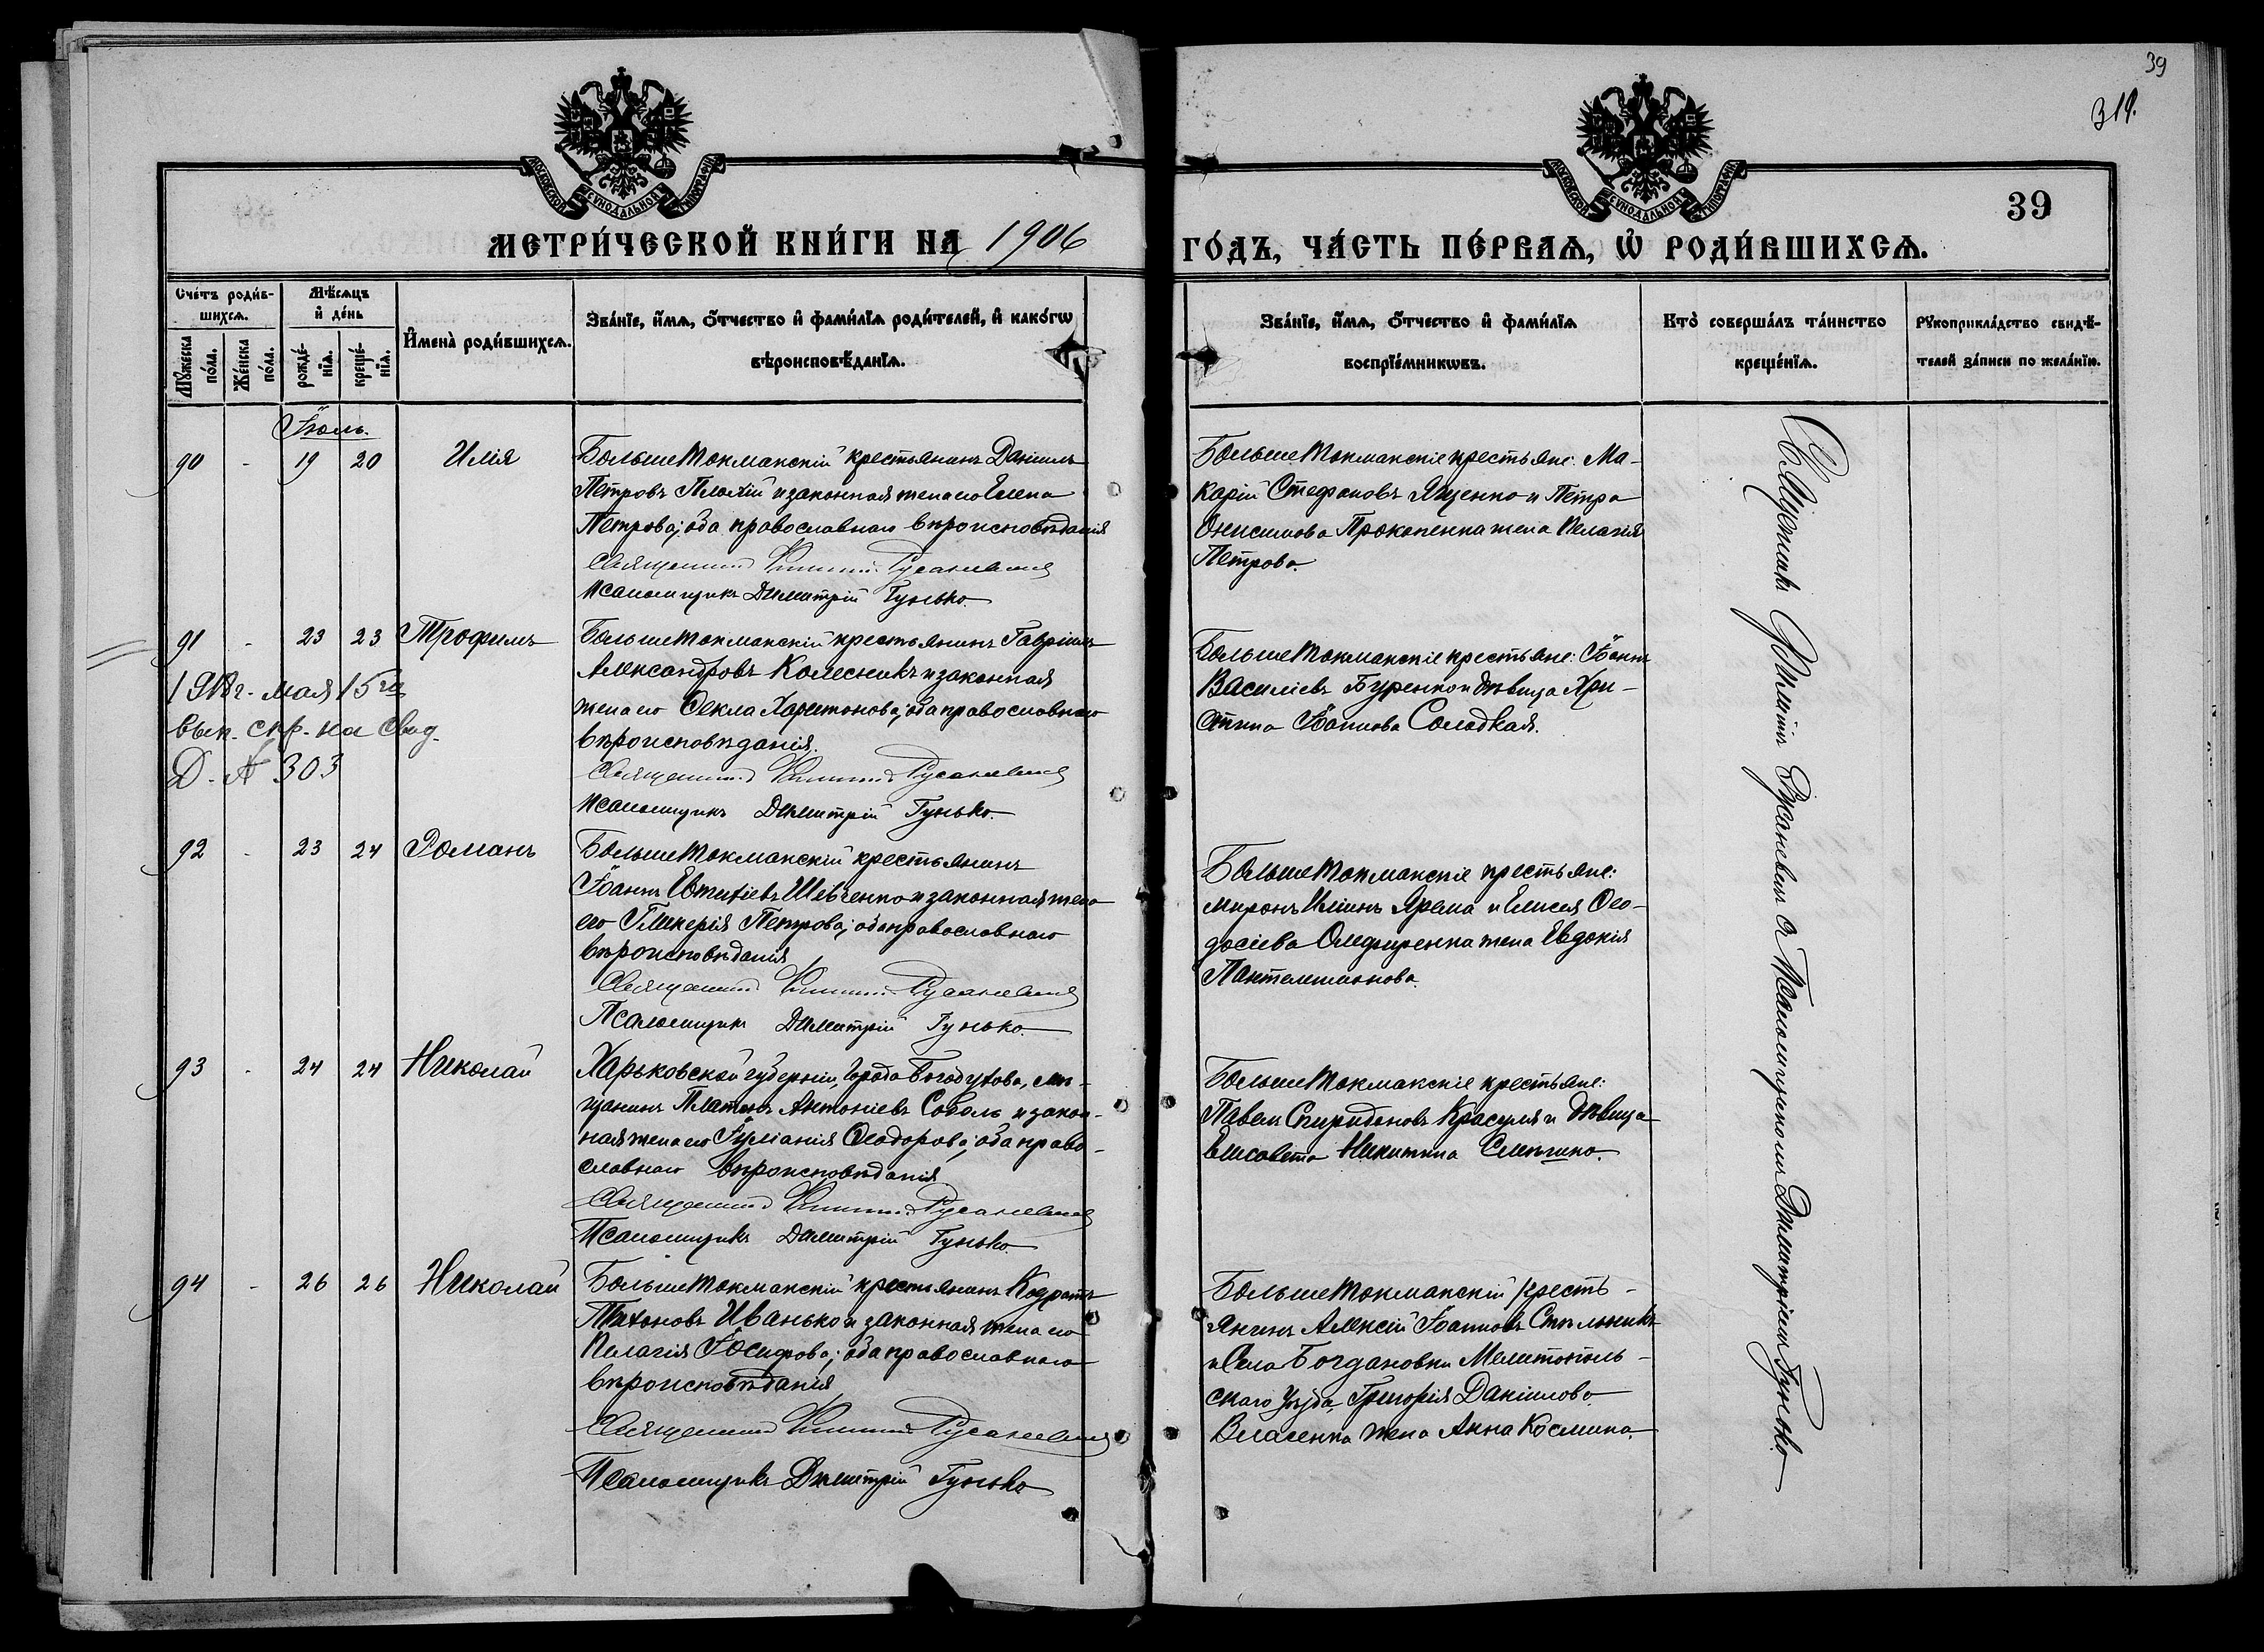 39
319.
МОСКОВСКОЙ СѴНОДАЛЬНОЙ ТИПОГРАФІИ
МОСКОВСКОЙ СѴНОДАЛЬНОЙ ТИПОГРАФІИ
39
МЕТРИ́ЧЕСКОЙ КНИ́ГИ НА 1906
ГО́ДЪ, ЧА́СТЬ ПЕ́РВАѦ, Ѽ РОДИ́ВШИХСѦ.
Сче́тъ роди́в-
шихсѧ.
Мꙋ́жеска по́ла.
Же́нска по́ла.
Мѣ́сѧцъ
и҆ де́нь
рожде́-нїѧ.
креще́-нїѧ.
И҆мена̀ роди́вшихсѧ.
Зва́нїе, и҆́мѧ, ѻ҆́тчество и҆ фами́лїѧ роди́телей, и҆ како́гѡ
вѣроисповѣ́данїѧ.
Зва́нїе, и҆́мѧ, ѻ҆́тчество и҆ фами́лїѧ
воспрїе́мникѡвъ.
Кто̀ соверша́лъ та́инство
креще́нїѧ.
Рꙋкоприкла́дство свидѣ́-
телей за́писи по жела́нїю.
Іюль.
90 - 19 20 Илія
БольшеТокманскій крестьянинъ Даніилъ
Петровъ Плохій и законная жена его Елена
Петрова; оба православнаго вѣроисповѣданія
Священникъ Филиппъ Русаневичъ
Псаломщикъ Димитрій Гунько.
БольшеТокманскіе крестьяне: Ма-
карій Стефановъ Яценко и Петра
Онисимова Прокопенка жена Пелагія
Петрова.
91 - 23 23 Трофимъ
БольшеТокманскій крестьянинъ Гавріилъ
Александровъ Колесникъ и законная
жена его Ѳекла Харитонова; оба православнаго
вѣроисповѣданія.
Священникъ Филиппъ Русаневичъ
Псаломщикъ Димитрій Гунько.
мая 15го
вып. спр. на
Д. № 303
БольшеТокманскіе крестьяне: Іоаннъ
Василіевъ Буренко и дѣвица Хри-
стина Іоаннова Солодкая.
92 - 23 24 Романъ
БольшеТокманскій крестьянинъ
Іоаннъ Евтихіевъ Шевченко и законная жена
его Гликерія Петрова; оба православнаго
вѣроисповѣданія
Священникъ Филиппъ Русаневичъ
Псаломщикъ Димитрій Гунько.
БольшеТокманскіе крестьяне:
Миронъ Иліинъ Ярема и Елисея Ѳео-
досіева Олефиренка жена Евдокія
Пантелимонова.
93 - 24 24 Николай
Харьковской губерніи, города Богодухова, мѣ-
щанинъ Платонъ Антоніевъ Соболь и закон-
ная жена его Іуліанія Ѳеодорова; оба право-
славнаго вѣроисповѣданія
Священникъ Филиппъ Русаневичъ
Псаломщикъ Димитрій Гунько.
БольшеТокманскіе крестьяне:
Павелъ Спиридоновъ Красуля и дѣвица
Елисавета Никитина
94 - 26 26 Николай
БольшеТокманскій крестьянинъ Кодратъ
Тихоновъ Иванько и законная жена его
Пелагія Іосифова; оба православнаго
вѣроисповѣданія
Священникъ Филиппъ Русаневичъ
Псаломщикъ Димитрій Гунько
БольшеТокманскій кресть-
янинъ Алексій Іоанновъ Стрельникъ
и села Богдановки Мелитополь-
скаго уѣзда, Григорія Даніилова
Власенка жена Анна Космина.
Священникъ Филиппъ Русаневичъ съ Псаломщикомъ Димитріемъ Гунько